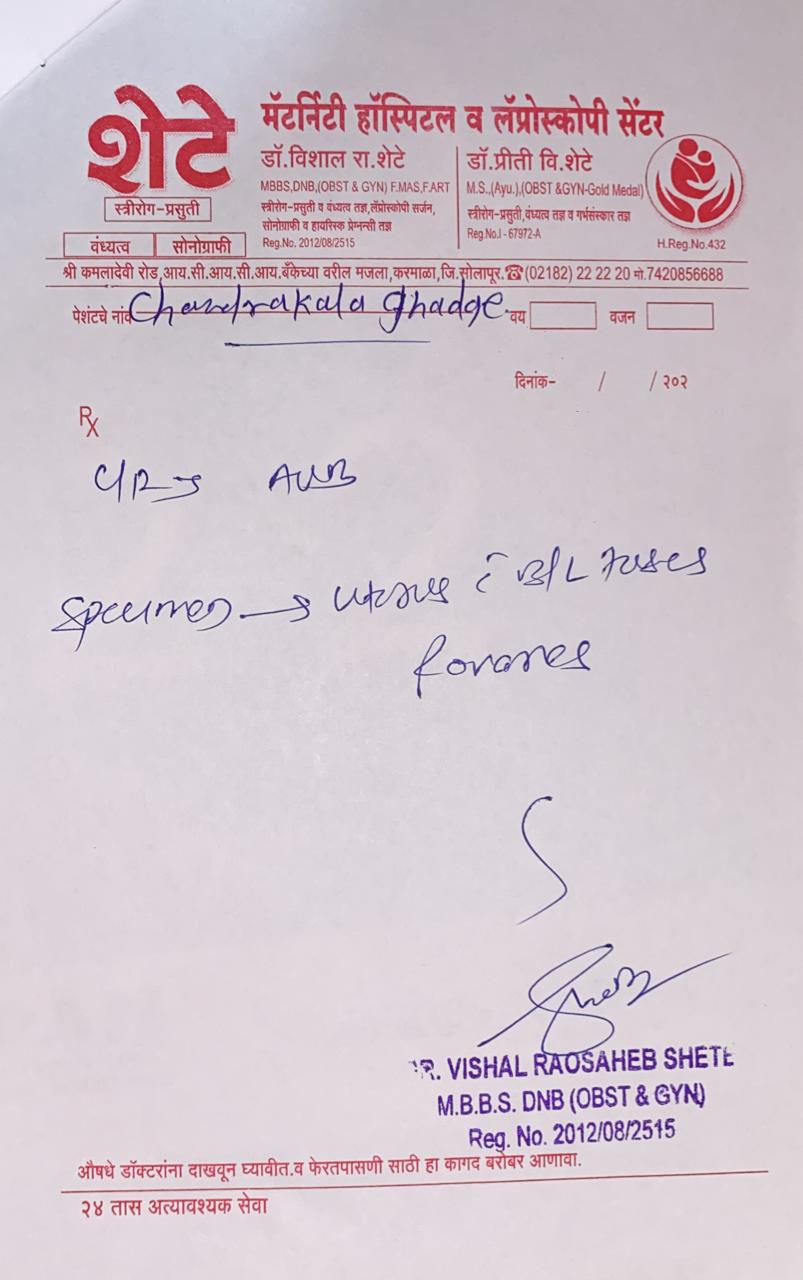 शेटे
स्त्रीरोग-प्रसुती
वंध्यत्व सोनोग्राफी
मॅटर्निटी हॉस्पिटल व लॅप्रोस्कोपी सेंटर
डॉ.विशाल रा.शेटे
MBBS,DNB,(OBST & GYN) F.MAS,F.ART
स्त्रीरोग-प्रसुती व वंध्यत्व तज्ञ,लॅप्रोस्कोपी सर्जन,
सोनोग्राफी व हायरिस्क प्रेग्नन्सी तज्ञ
Reg.No. 2012/08/2515
डॉ.प्रीती वि.शेटे
M.S.,(Ayu.),(OBST &GYN-Gold Medal)
स्त्रीरोग-प्रसुती,वंध्यत्व तज्ञ व गर्भसंस्कार तज्ञ
Reg.No.I - 67972-A
H.Reg.No.432
श्री कमलादेवी रोड,आय.सी.आय.सी.आय.बँकेच्या वरील मजला,करमाळा,जि.सोलापूर.☎(02182) 22 22 20 मो.7420856688
पेशंटचे नांव Chandrakala Ghadge. वय वजन
दिनांक- / / २०२
Rx
AUB
Specimen → uterus c̄ B/L tubes
ovaries
DR. VISHAL RAOSAHEB SHETE
M.B.B.S. DNB (OBST & GYN)
Reg. No. 2012/08/2515
औषधे डॉक्टरांना दाखवून घ्यावीत.व फेरतपासणी साठी हा कागद बरोबर आणावा.
२४ तास अत्यावश्यक सेवा